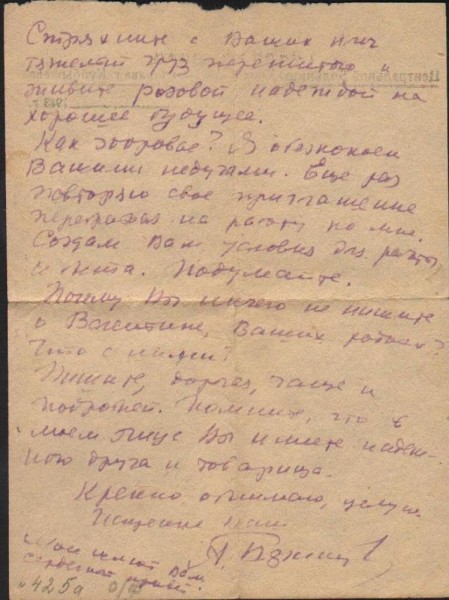 Стряхните с Ваших плеч
тяжелый груз пережитого и
живите розовой надеждой на
хорошее будущее.
Как здоровье? Я обеспокоен
Вашими недугами. Еще раз
повторяю свое приглашение
переезжать на работу ко мне.
Создам Вам условия для работы
и быта. Подумайте.
Почему Вы ничего не пишите
о Валентине, Ваших родных?
Что с ними?
Пишите, дорогая, чаще и
подробней. Помните, что в
моем лице Вы имеете надеж-
ного друга и товарища.
Крепко обнимаю, целую.
Искренне Ваш
Мои шлют Вам
сердечный привет.
425а